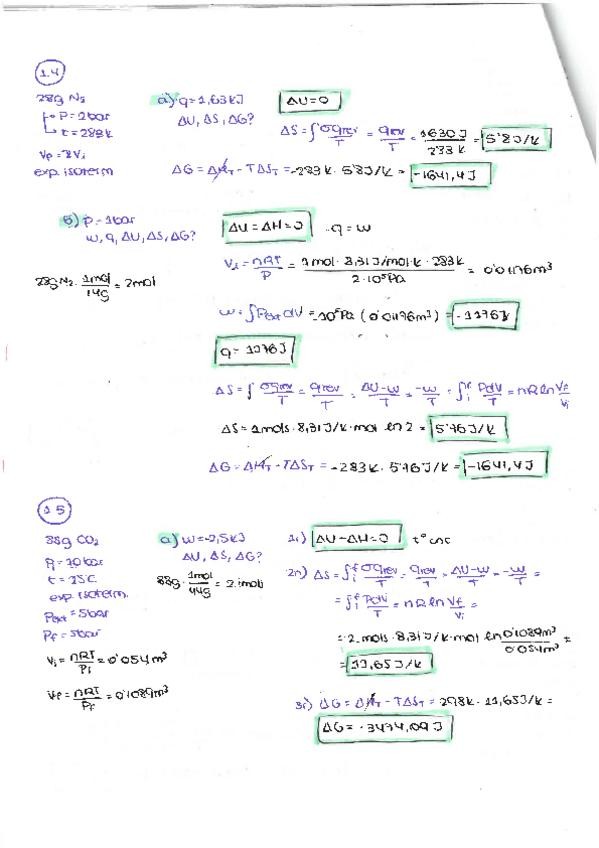 1.4
28g N₂
P=2bar
t=283K
Vf=2Vi
exp. isoterm
a) q=1,63kJ
ΔU, ΔS, ΔG?
ΔU=0
ΔS=∫ σqrev/T = qrev/T = 1630 J/283 K = 5'8 J/K
ΔG = ΔHT - TΔST = -283K · 5'8 J/K = -1641,4 J
b) p=1bar
w, q, ΔU, ΔS, ΔG?
28g N₂ · 1mol/14g = 2mol
ΔU=ΔH=0 q=w
Vi = nRT/P = 1mol · 8,31 J/mol·K · 283K / 2·10⁵Pa = 0'01176m³
w=∫Pext dV = -10⁵Pa (0'01176m³) = -1176J
q= 1176J
ΔS=∫ σqrev/T = qrev/T = ΔU-w/T = -w/T = ∫ᵢᶠ PdV/T = nR ln Vf/Vi
ΔS= 1mols · 8,31 J/K·mol ln 2 = 5'76 J/K
ΔG = ΔHT - TΔST = -283K · 5'76 J/K = -1641,4J
1.5
88g CO₂
Pi=10bar
t=25C
exp isoterm.
Pext=5bar
Pf=5bar
Vi = nRT/Pi = 0'054m³
Vf = nRT/Pf = 0'1089m³
a) w=-2,5kJ
ΔU, ΔS, ΔG?
88g · 1mol/44g = 2 mols
1r) ΔU=ΔH=0 tº cnt
2n) ΔS=∫ᵢᶠ σqrev/T = qrev/T = ΔU-w/T = -w/T =
=∫ᵢᶠ PdV/T = nR ln Vf/Vi =
= 2 mols · 8,31 J/K·mol ln 0'1089m³/0'054m³ =
= 11,65 J/K
3r) ΔG = ΔHT - TΔST = 298K · 11,65 J/K =
ΔG = -3474,09 J